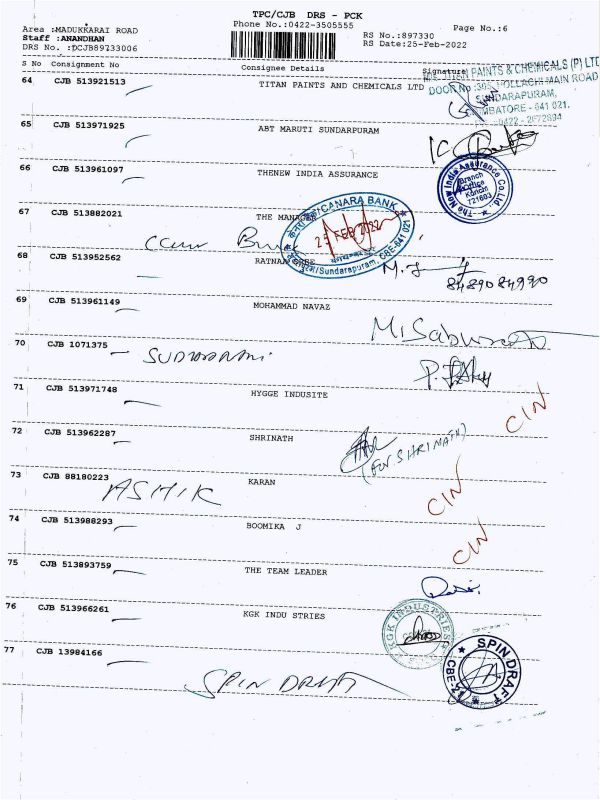 TPC/CJB DRS - PCK
Phone No.:0422-3505555
Page No.:6
Area :MADUKKARAI ROAD
Staff :ANANDHAN
DRS No. :DCJB89733006
RS No.:897330
RS Date:25-Feb-2022
S No Consignment No Consignee Details Signature
64 CJB 513921513 TITAN PAINTS AND CHEMICALS LTD
PAINTS & CHEMICALS (P) LTD
DOOR No :303, POLLACHI MAIN ROAD
SUNDARAPURAM,
COIMBATORE - 641 021.
65 CJB 513971925 ABT MARUTI SUNDARPURAM
66 CJB 513961097 THENEW INDIA ASSURANCE
The New India Assurance Co. Ltd.
Branch
Office
721603
67 CJB 513882021 THE MANAGER
CANARA BANK
25 FEB 2022
Sundarapuram, CBE-641 021
68 CJB 513952562 RATNAM
8489084990
69 CJB 513961149 MOHAMMAD NAVAZ
70 CJB 1071375
71 CJB 513971748 HYGGE INDUSITE
CIN
72 CJB 513962287 SHRINATH
(for SHRINATH)
73 CJB 88180223 KARAN
ASHIK
CIN
74 CJB 513988293 BOOMIKA J
CIN
75 CJB 513893759 THE TEAM LEADER
76 CJB 513966261 KGK INDU STRIES
KGK INDUSTRIES
77 CJB 13984166
SPIN DRAFT
SPIN DRAFT